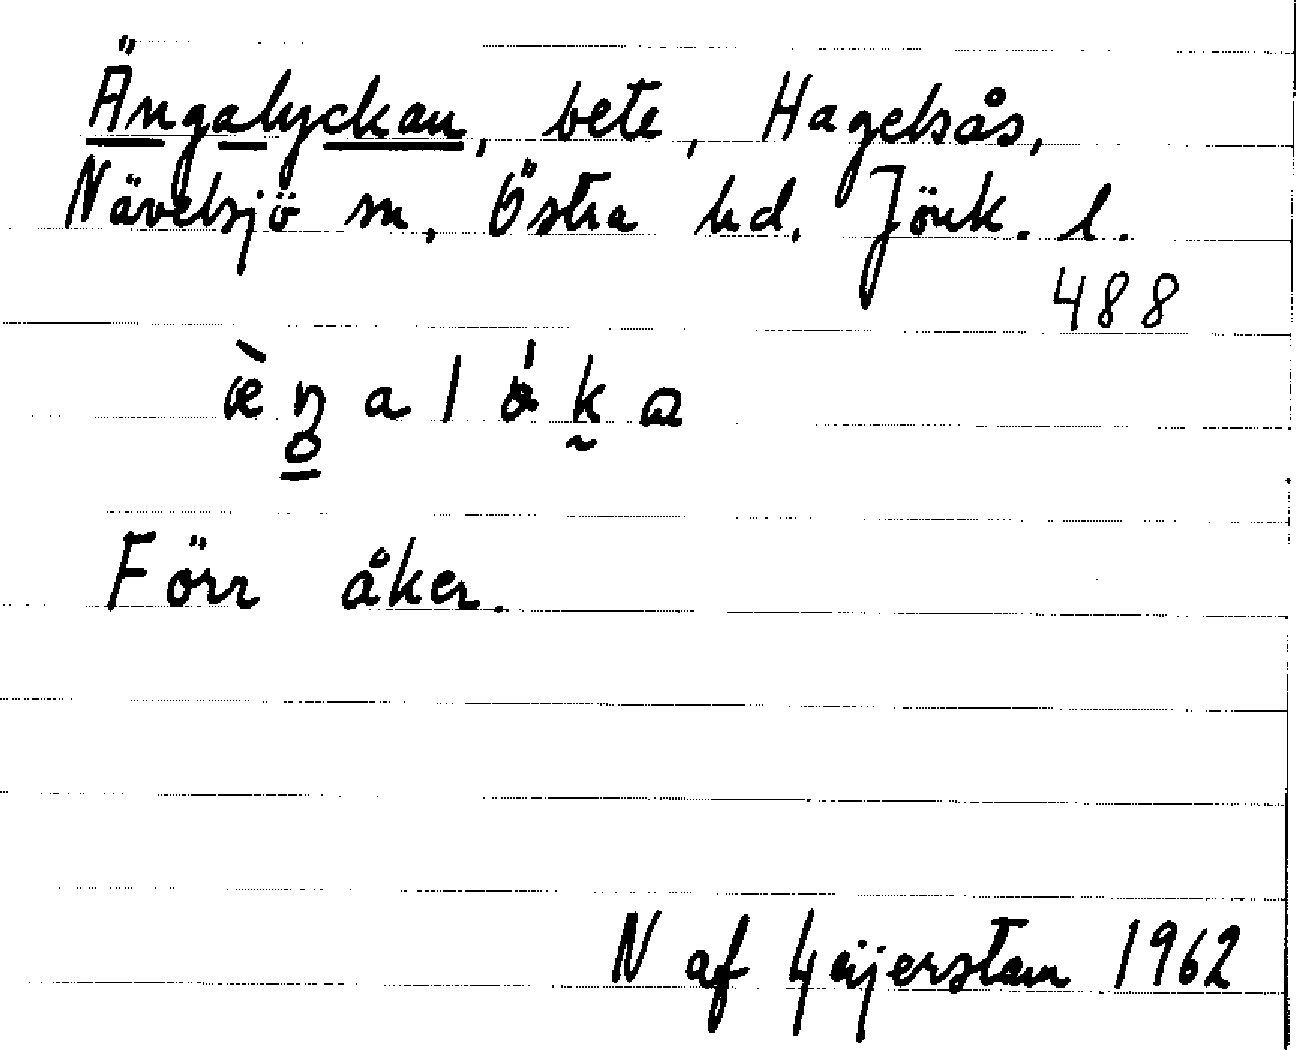 Ängalyckan, bete, Hagelsås,
Nävelsjö sn, Östra hd. Jönk. l.
488
Förr åker.
N af Geijerstam 1962